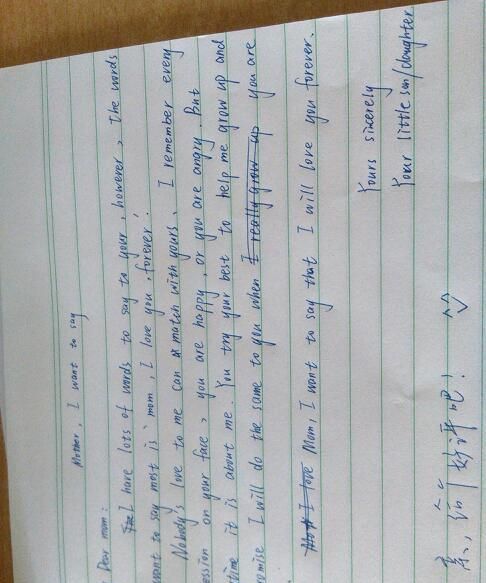 Mother, I want to say
Dear mom:
I have lots of words to say to your, however, the words
want to say most is "mom, I love you, forever."
Nobody's love to me can match with yours. I remember every
ession on your face, you are happy, or you are angry. But
time it is about me. You try your best to help me grow up and
omise I will do the same to you when I really grow up you are
I love Mom, I want to say that I will love you forever.
Yours sincerely
Your little son/daughter
亲,给个好评吧!